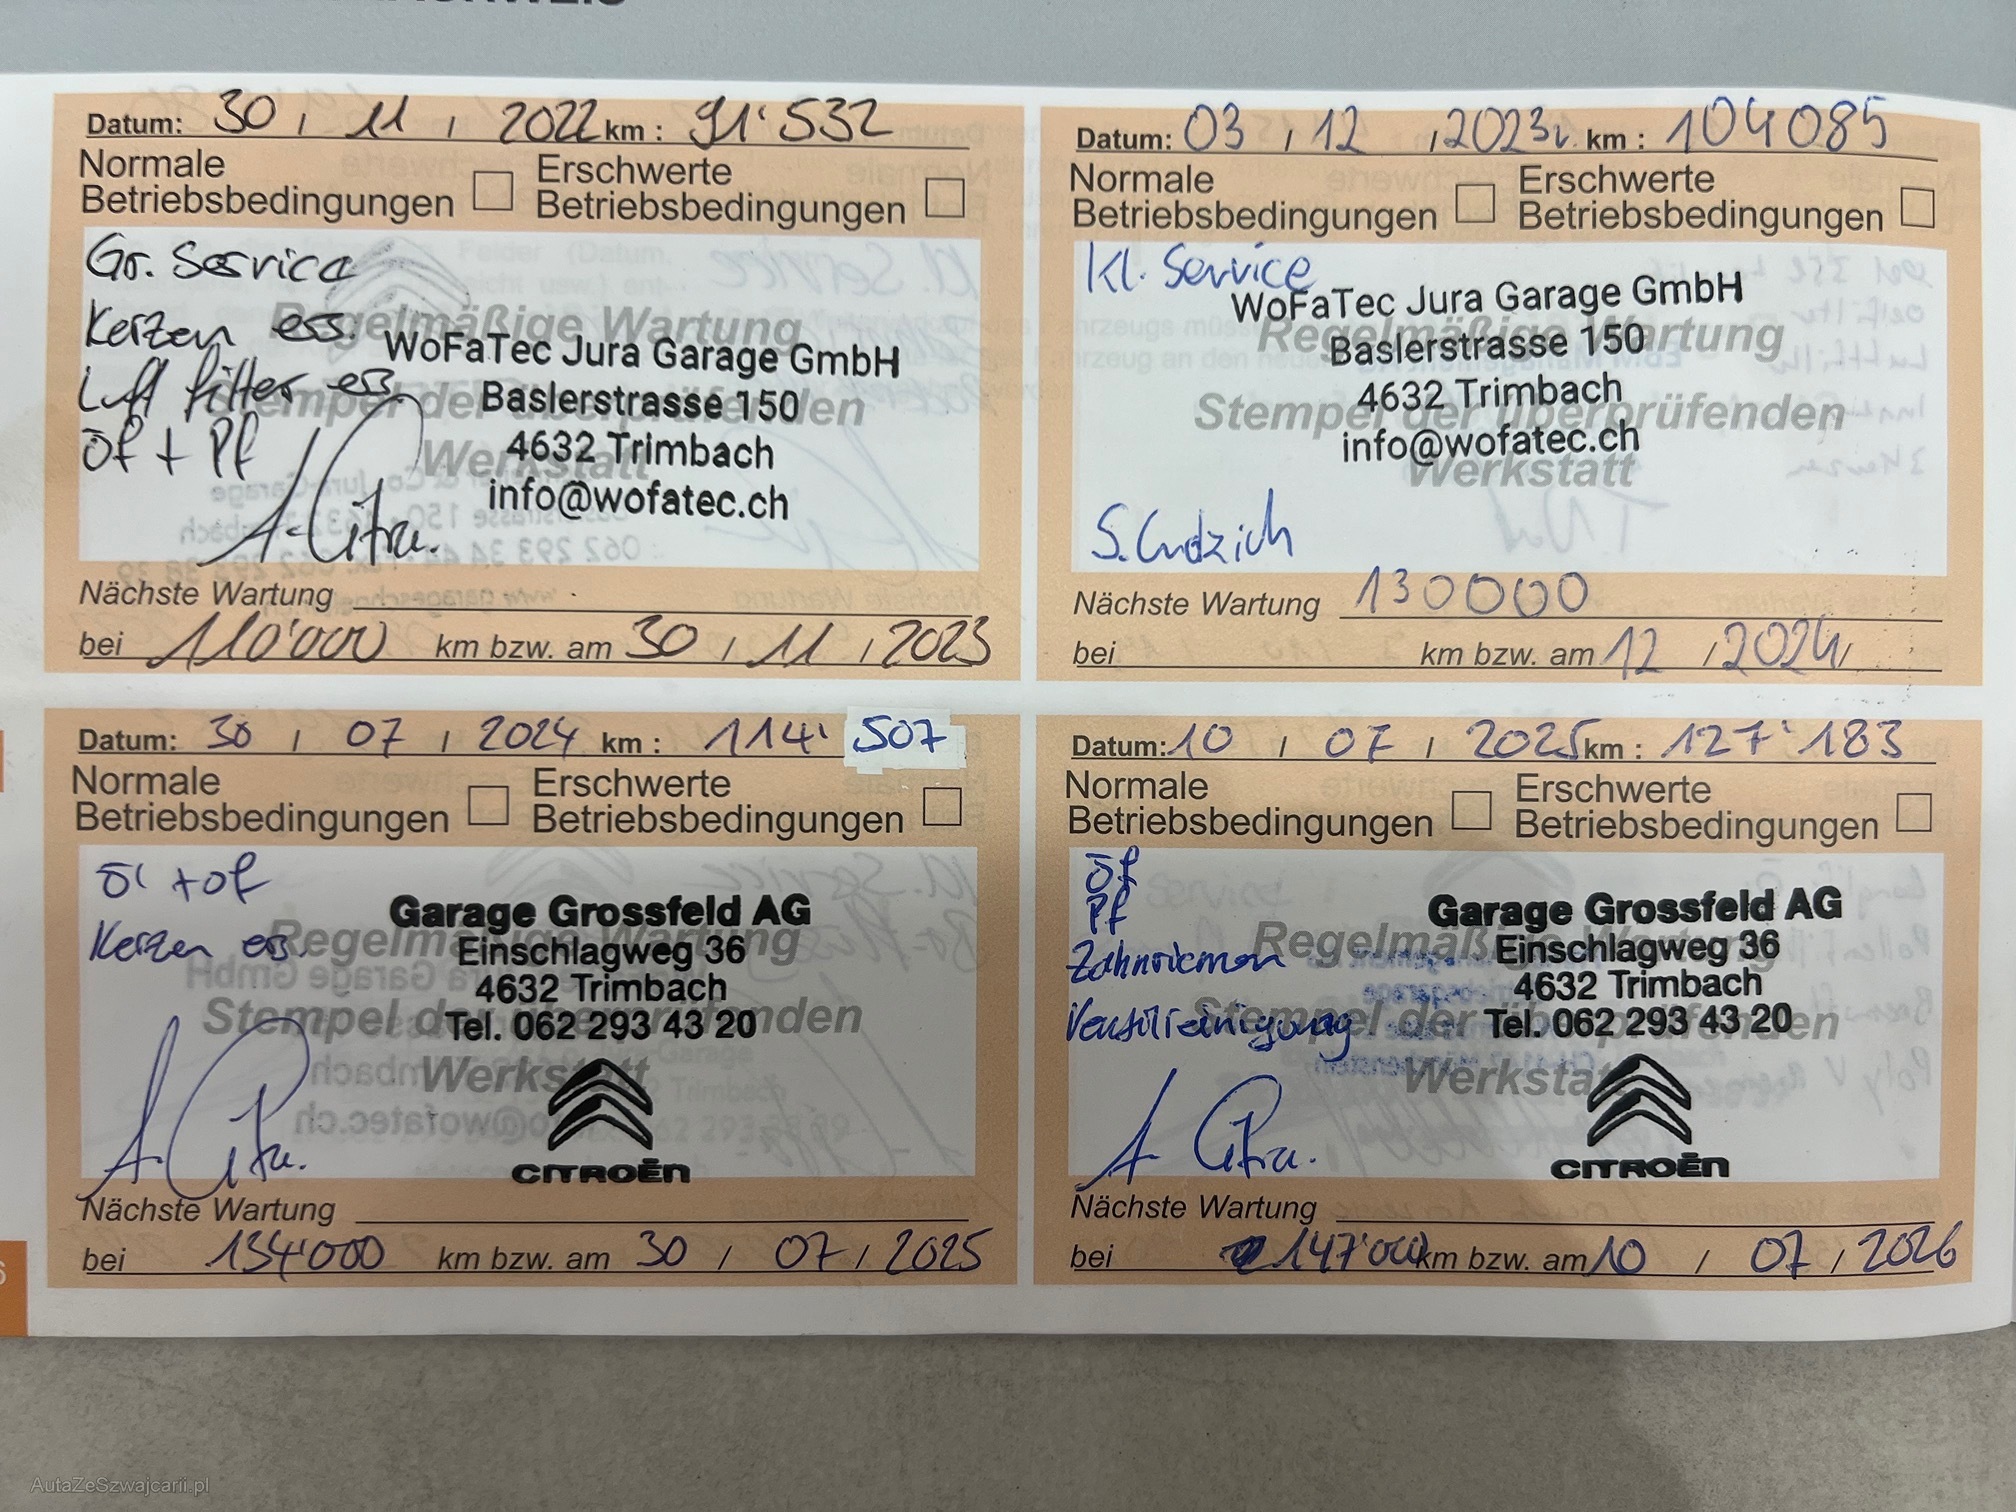 Datum: 30 / 11 / 2022 km : 91'532
Normale Betriebsbedingungen
Erschwerte Betriebsbedingungen
Gr. Service
Kerzen ers.
Luftfilter ers
Öf + Pf
Regelmäßige Wartung
Stempel der überprüfenden
Werkstatt
WoFaTec Jura Garage GmbH
Baslerstrasse 150
4632 Trimbach
info@wofatec.ch
Nächste Wartung
bei 110'000 km bzw. am 30 / 11 / 2023
Datum: 03 / 12 / 2023 km : 104085
Normale Betriebsbedingungen
Erschwerte Betriebsbedingungen
Kl. Service
WoFaTec Jura Garage GmbH
Baslerstrasse 150
4632 Trimbach
info@wofatec.ch
Regelmäßige Wartung
Stempel der überprüfenden
Werkstatt
Nächste Wartung 130000
bei km bzw. am 12 / 2024 /
Datum: 30 / 07 / 2024 km : 114' 507
Normale Betriebsbedingungen
Erschwerte Betriebsbedingungen
Öl + öf
Kerzen ers.
Regelmäßige Wartung
Stempel der überprüfenden
Werkstatt
Garage Grossfeld AG
Einschlagweg 36
4632 Trimbach
Tel. 062 293 43 20
CITROËN
Nächste Wartung
bei 134'000 km bzw. am 30 / 07 / 2025
Datum: 10 / 07 / 2025 km : 127'183
Normale Betriebsbedingungen
Erschwerte Betriebsbedingungen
Öf
Pf
Zahnriemen
Ventilreinigung
Regelmäßige Wartung
Stempel der überprüfenden
Werkstatt
Garage Grossfeld AG
Einschlagweg 36
4632 Trimbach
Tel. 062 293 43 20
CITROËN
Nächste Wartung
bei 147'000 km bzw. am 10 / 07 / 2026
AutaZeSzwajcarii.pl